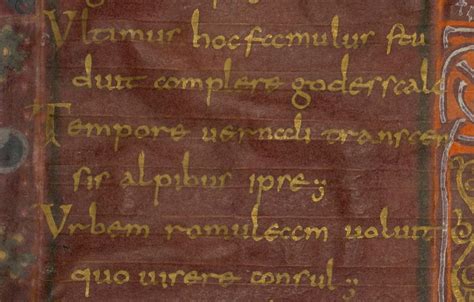 Vltimus hoc famulus stu
duit complere godesscalc
Tempore uernali transcen
sis alpibus ipse;
Vrbem romuleam uoluit
quo uisere consul;